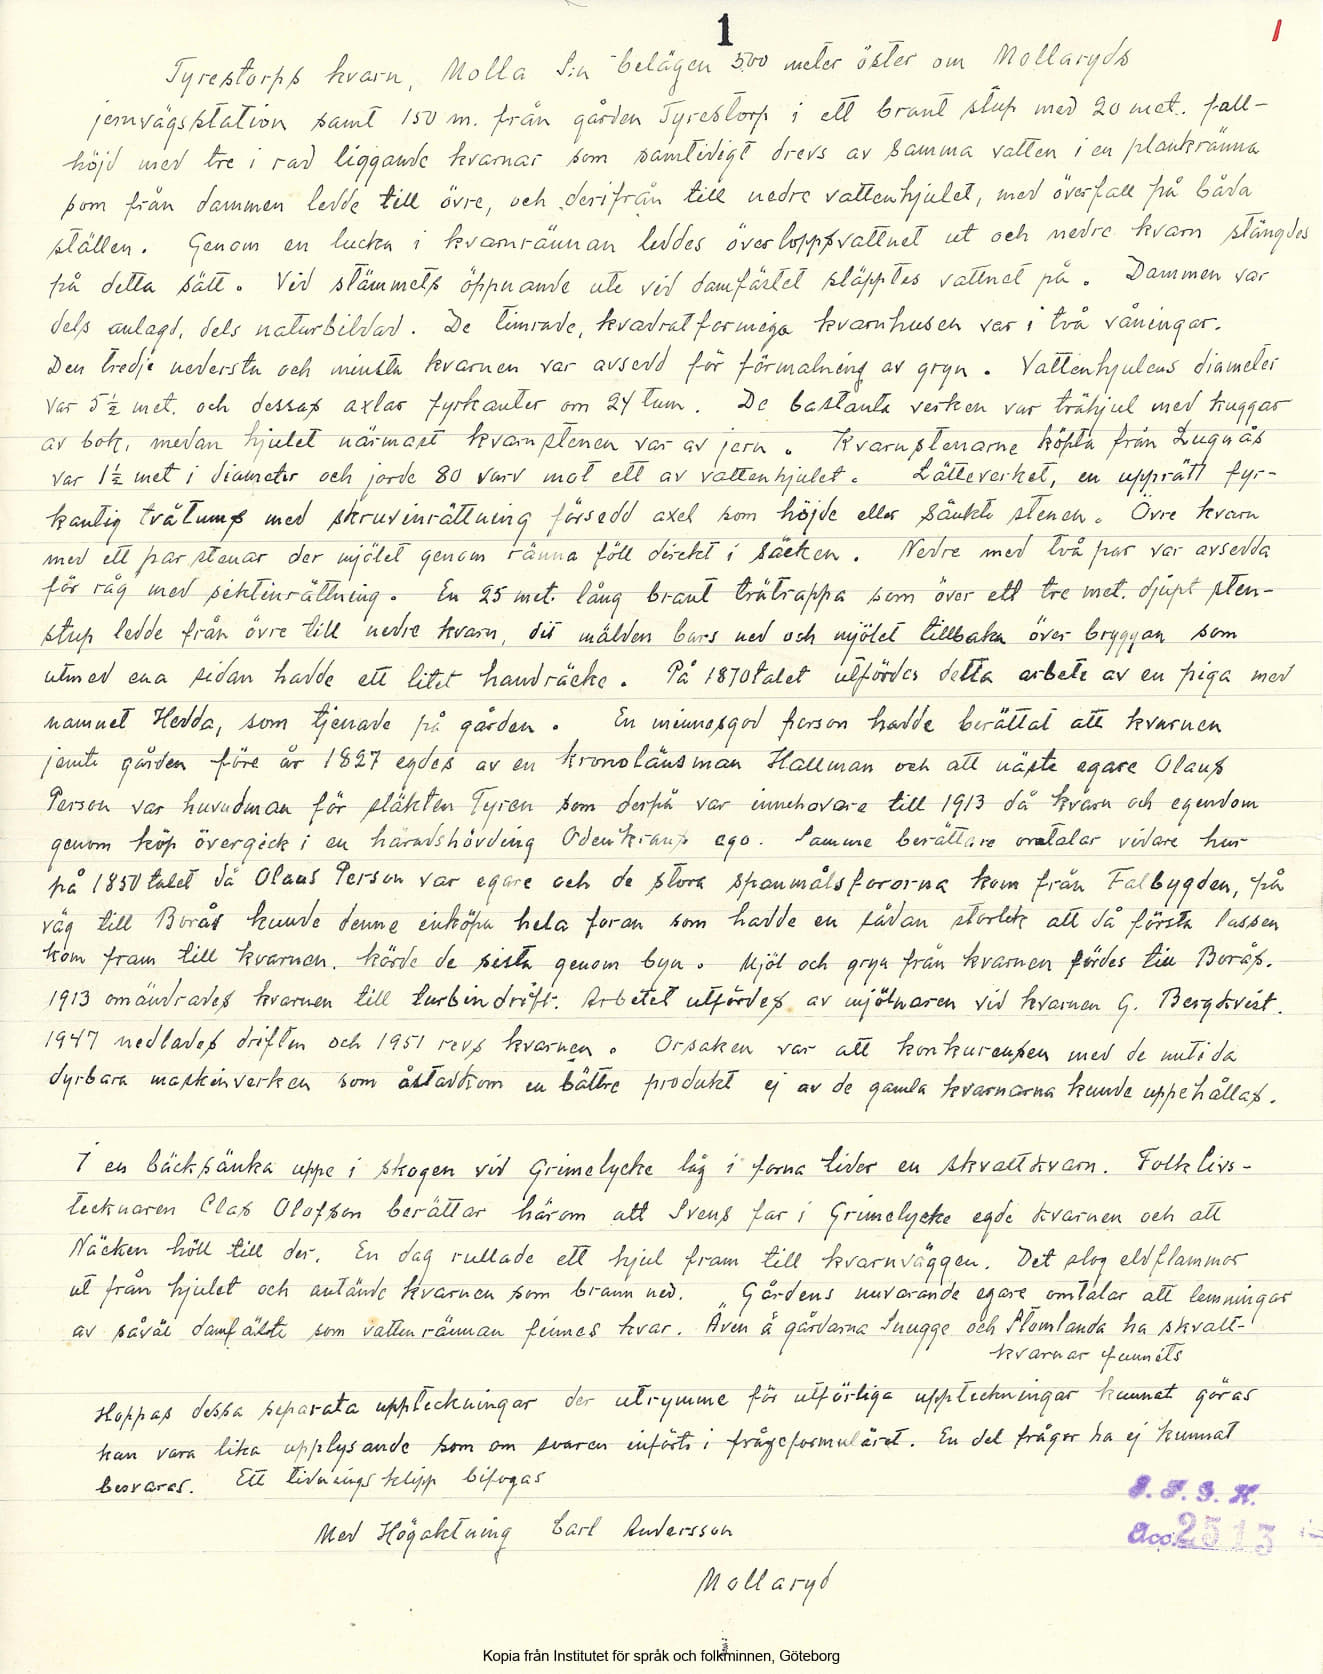 1
1
Tyrestorps kvarn, Molla S:n belägen 500 meter öster om Mollaryds
jernvägsstation samt 150 m. från gården Tyrestorp i ett brant stup med 20 met. fall-
höjd med tre i rad liggande kvarnar som samtidigt drevs av samma vatten i en plankränna
som från dammen ledde till övre, och derifrån till nedre vattenhjulet, med överfall på båda
ställen. Genom en lucka i kvarnrännan leddes överloppsvattnet ut och nedre kvarn stängdes
på detta sätt. Vid stämmets öppnande ute vid damfästet släpptes vattnet på. Dammen var
dels anlagd, dels naturbildad. De timrade, kvadratformiga kvarnhusen var i två våningar.
Den tredje nedersta och minsta kvarnen var avsedd för förmalning av gryn. Vattenhjulens diameter
var 5½ met. och dessas axlar fyrkanter om 24 tum. De bastanta verken var trähjul med kuggar
av bok, medan hjulet närmast kvarnstenen var av jern. Kvarnstenarne köpta från Lugnås
var 1½ met i diameter och jorde 80 varv mot ett av vattenhjulet. Lätteverket, en upprätt fyr-
kantig tvåtums med skruvinrättning försedd axel som höjde eller sänkte stenen. Övre kvarn
med ett par stenar der mjölet genom ränna föll direkt i säcken. Nedre med två par var avsedda
för råg med siktinrättning. En 25 met. lång brant trätrappa som över ett tre met. djupt sten-
stup ledde från övre till nedre kvarn, dit mälden bars ned och mjölet tillbaka över bryggan som
utmed ena sidan hadde ett litet handräcke. På 1870talet utfördes detta arbete av en piga med
namnet Hedda, som tjenade på gården. En minnesgod person hadde berättat att kvarnen
jemte gården före år 1827 egdes av en kronolänsman Hallman och att näste egare Olaus
Person var huvudman för släkten Tyren som derpå var innehavare till 1913 då kvarn och egendom
genom köp övergick i en häradshövding Odenkrants ego. Samme berättare omtalar vidare hur
på 1850talet då Olaus Person var egare och de stora spanmålsfororna kom från Falbygden, på
väg till Borås kunde denne inköpa hela foran som hadde en sådan storlek att då första lassen
kom fram till kvarnen, körde de sista genom byn. Mjöl och gryn från kvarnen fördes till Borås.
1913 omändrades kvarnen till turbindrift. Arbetet utfördes av mjölnaren vid kvarnen G. Bergkvist.
1947 nedlades driften och 1951 revs kvarnen. Orsaken var att konkurensen med de nutida
dyrbara maskinverken som åstadkom en bättre produkt ej av de gamla kvarnarna kunde uppehållas.
I en bäcksänka uppe i skogen vid Grimelycke låg i forna tider en skvaltkvarn. Folklivs-
tecknaren Clas Olofson berättar härom att Svens far i Grimelycke egde kvarnen och att
Näcken höll till der. En dag rullade ett hjul fram till kvarnväggen. Det slog eldflammor
ut från hjulet och antände kvarnen som brann ned. Gårdens nuvarande egare omtalar att lemningar
av såväl damfäste som vattenrännan finnes kvar. Även å gårdarna Snugge och Stomlanda ha skvalt-
kvarnar funnits
Hoppas dessa separata uppteckningar der utrymme för utförliga uppteckningar kunnat göras
kan vara lika upplysande som om svaren införts i frågeformuläret. En del frågor ha ej kunnat
besvaras. Ett tidningsklipp bifogas
Med Högaktning Carl Andersson
Mollaryd
Acc. 2513
Kopia från Institutet för språk och folkminnen, Göteborg